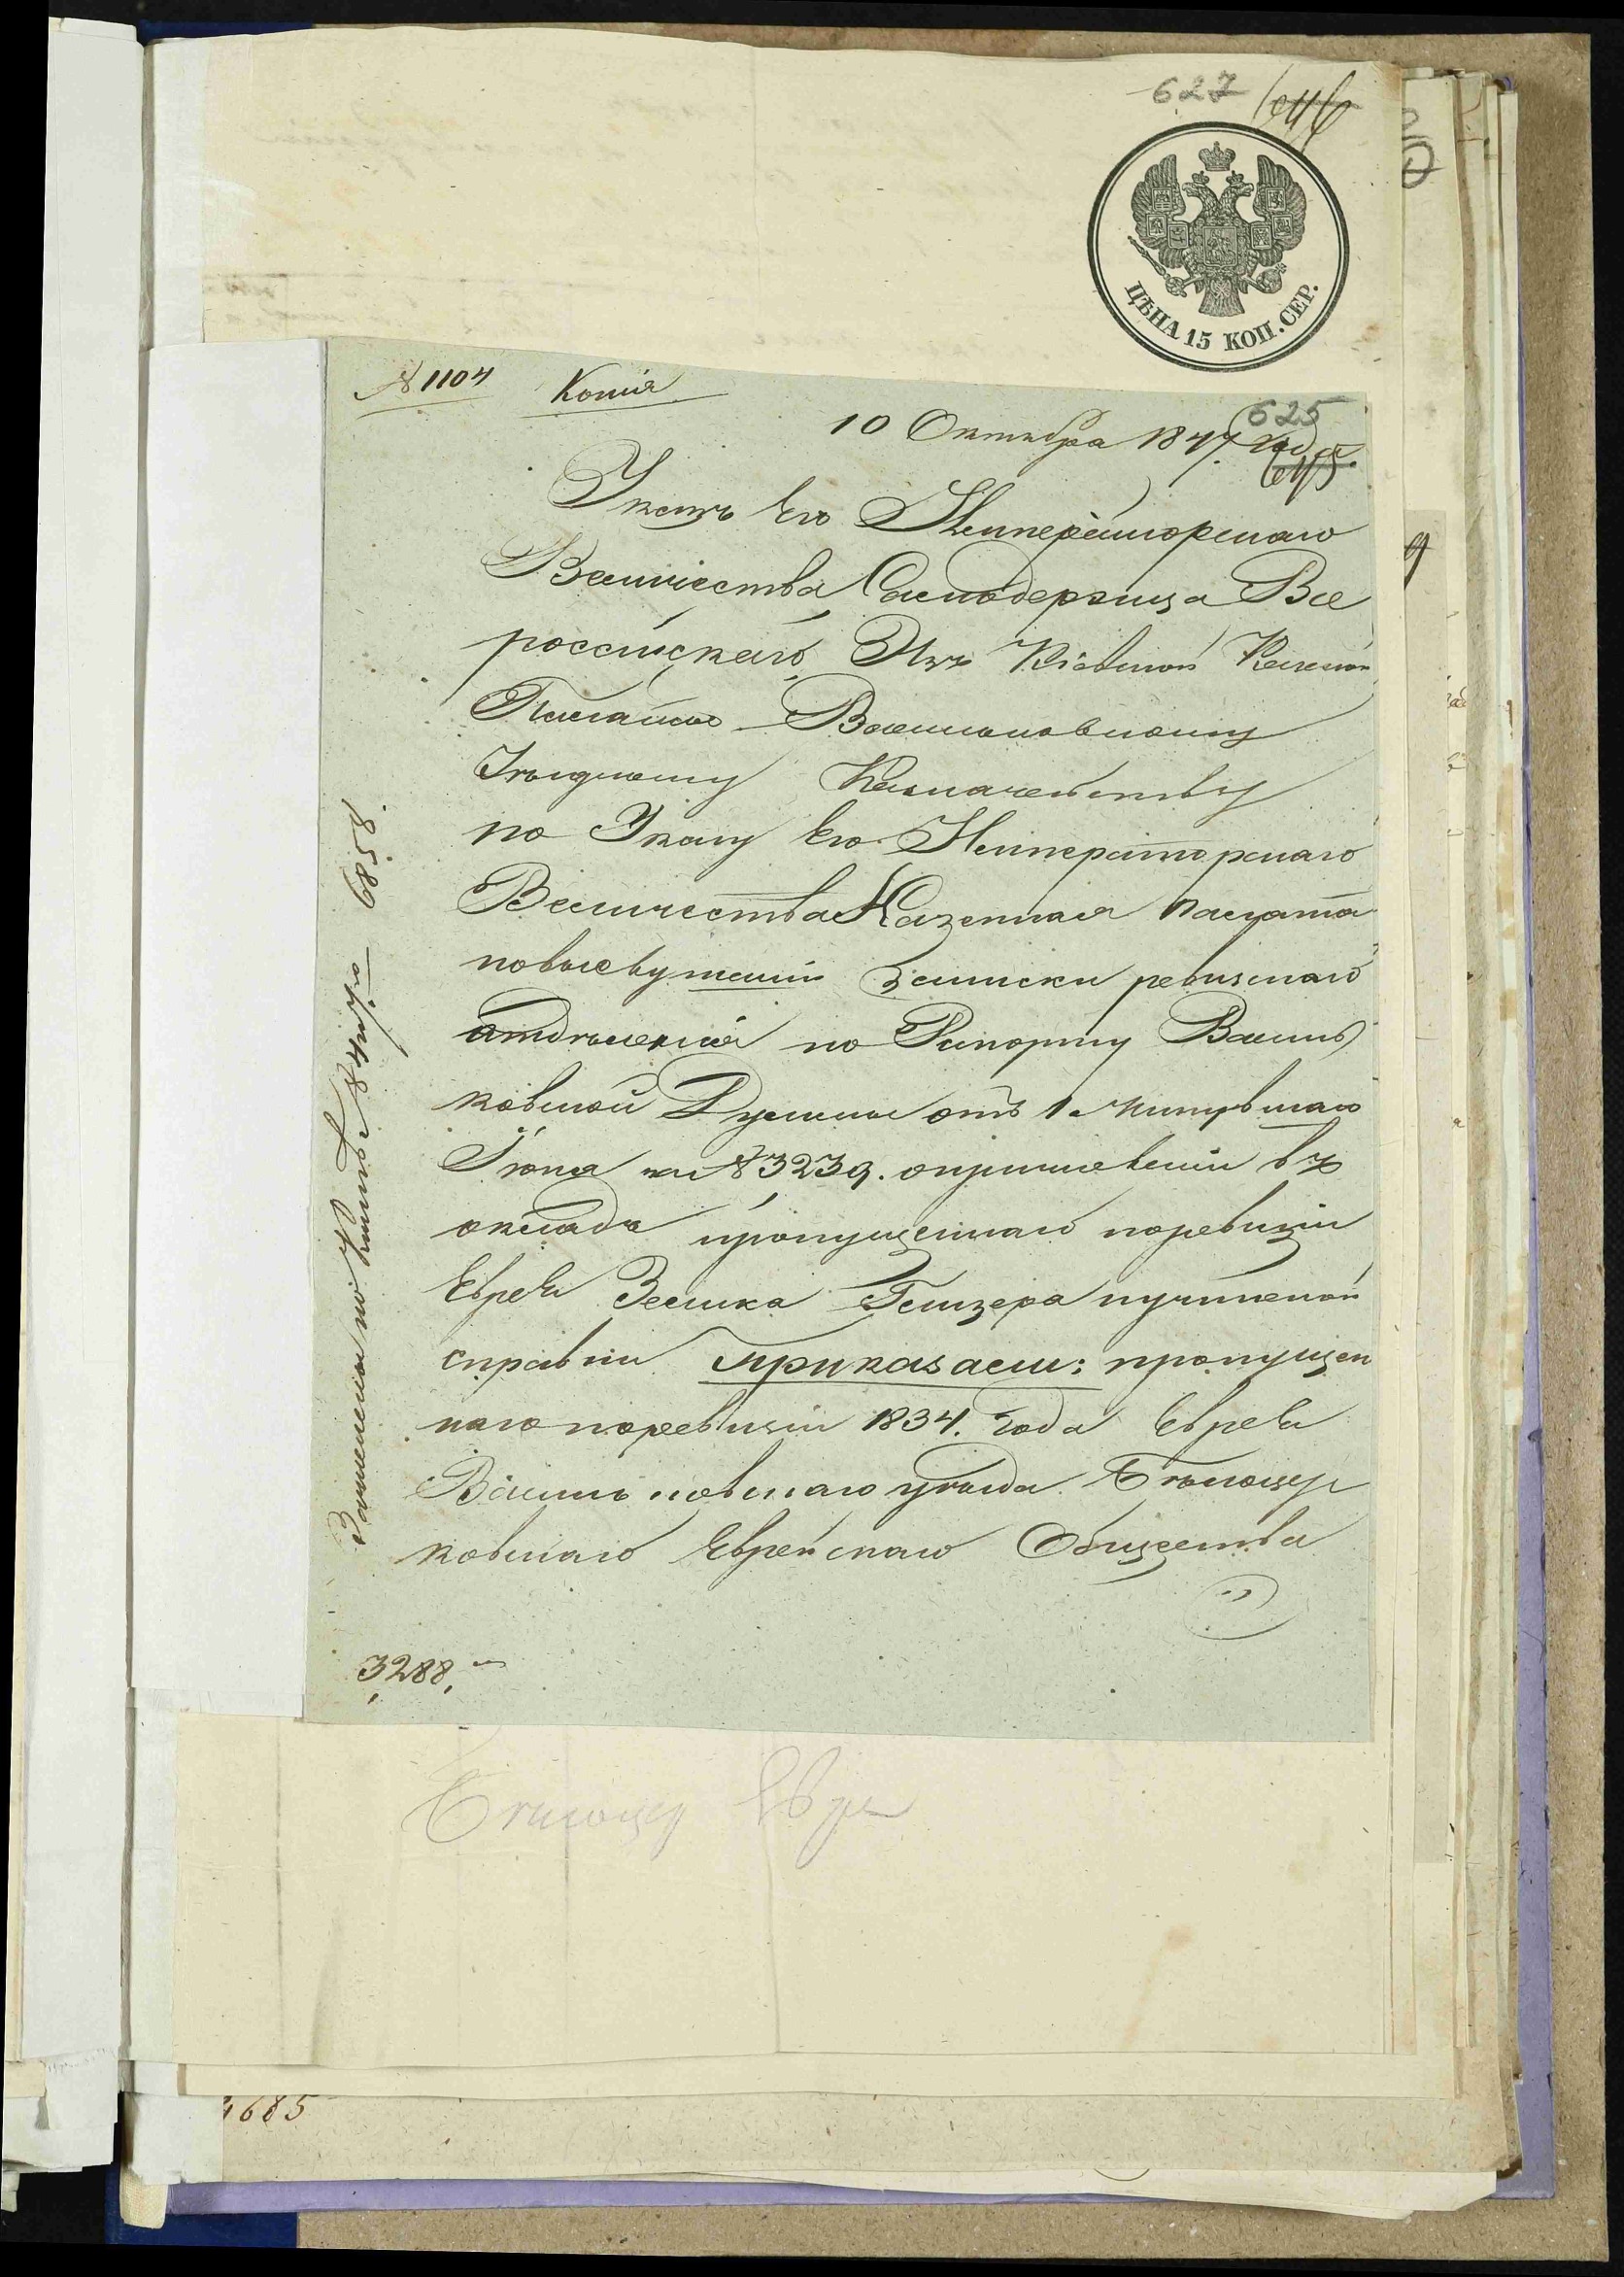 627
ЦѢНА 15 КОП. СЕР.
№ 1104 Копія
625
10 Октября 1847 года.
645
Указъ Его Императорскаго
Величества Самодержца Все
россійскаго, Изъ Кіевской Казенной
Палаты Васильковскому
Уѣздному Казначейству
по Указу Его Императорскаго
Величества Казенная Палата
повыслушаніи записки ревизскаго
отдѣленія по Рапорту Василь
ковской Думы отъ 1 минувшаго
Іюня за № 3239. опричисленіи въ
окладъ пропущеннаго поревизіи
Еврея Зелика учиненой
справки приказали: пропущен
наго поревизіи 1834. года Еврея
Васильковскаго уѣзда Бѣлоцер
ковскаго Еврейскаго Общества
3288.
по книгѣ 6858.
Бѣлоцер Евр
685